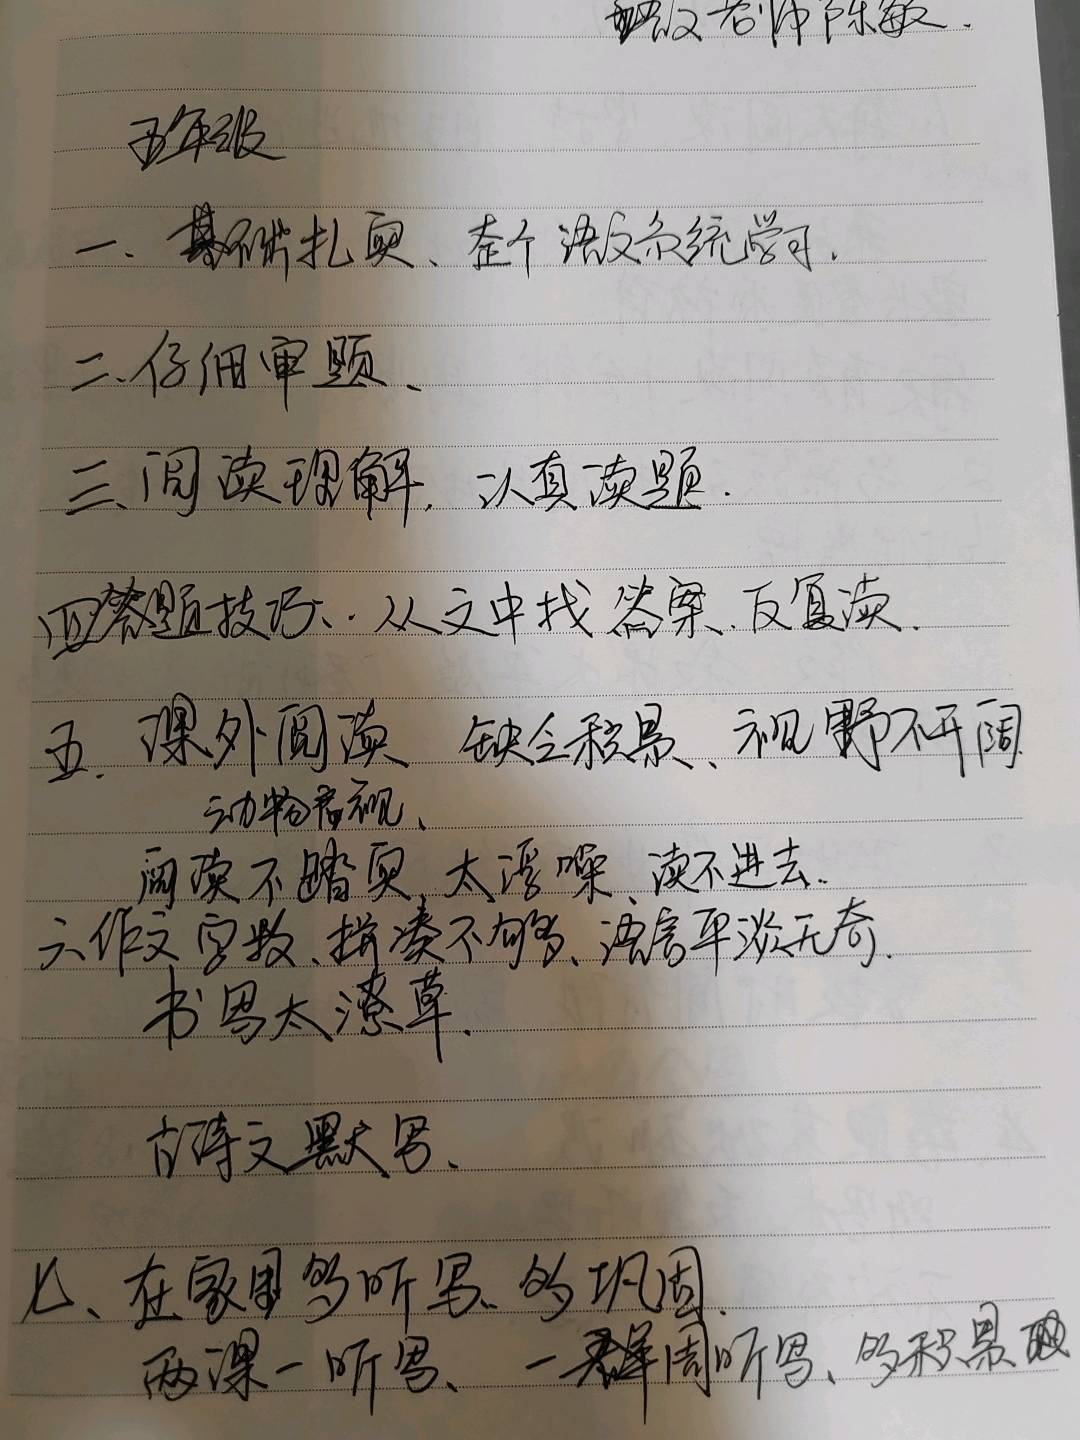 老师陈敏.
五年级
一、基础扎实、整个语文系统学习.
二、仔细审题、
三、阅读理解,认真读题.
四答题技巧、.从文中找答案.反复读.
五.课外阅读 缺乏积累、视野不开阔
动物 视、
阅读不踏实,太浮噪、读不进去.
六、作文字数、拼凑不够、语言平淡无奇.
书写太潦草.
古诗文默写、
七、在家里多听写、多巩固.
两课一听写、一 周听写、多积累